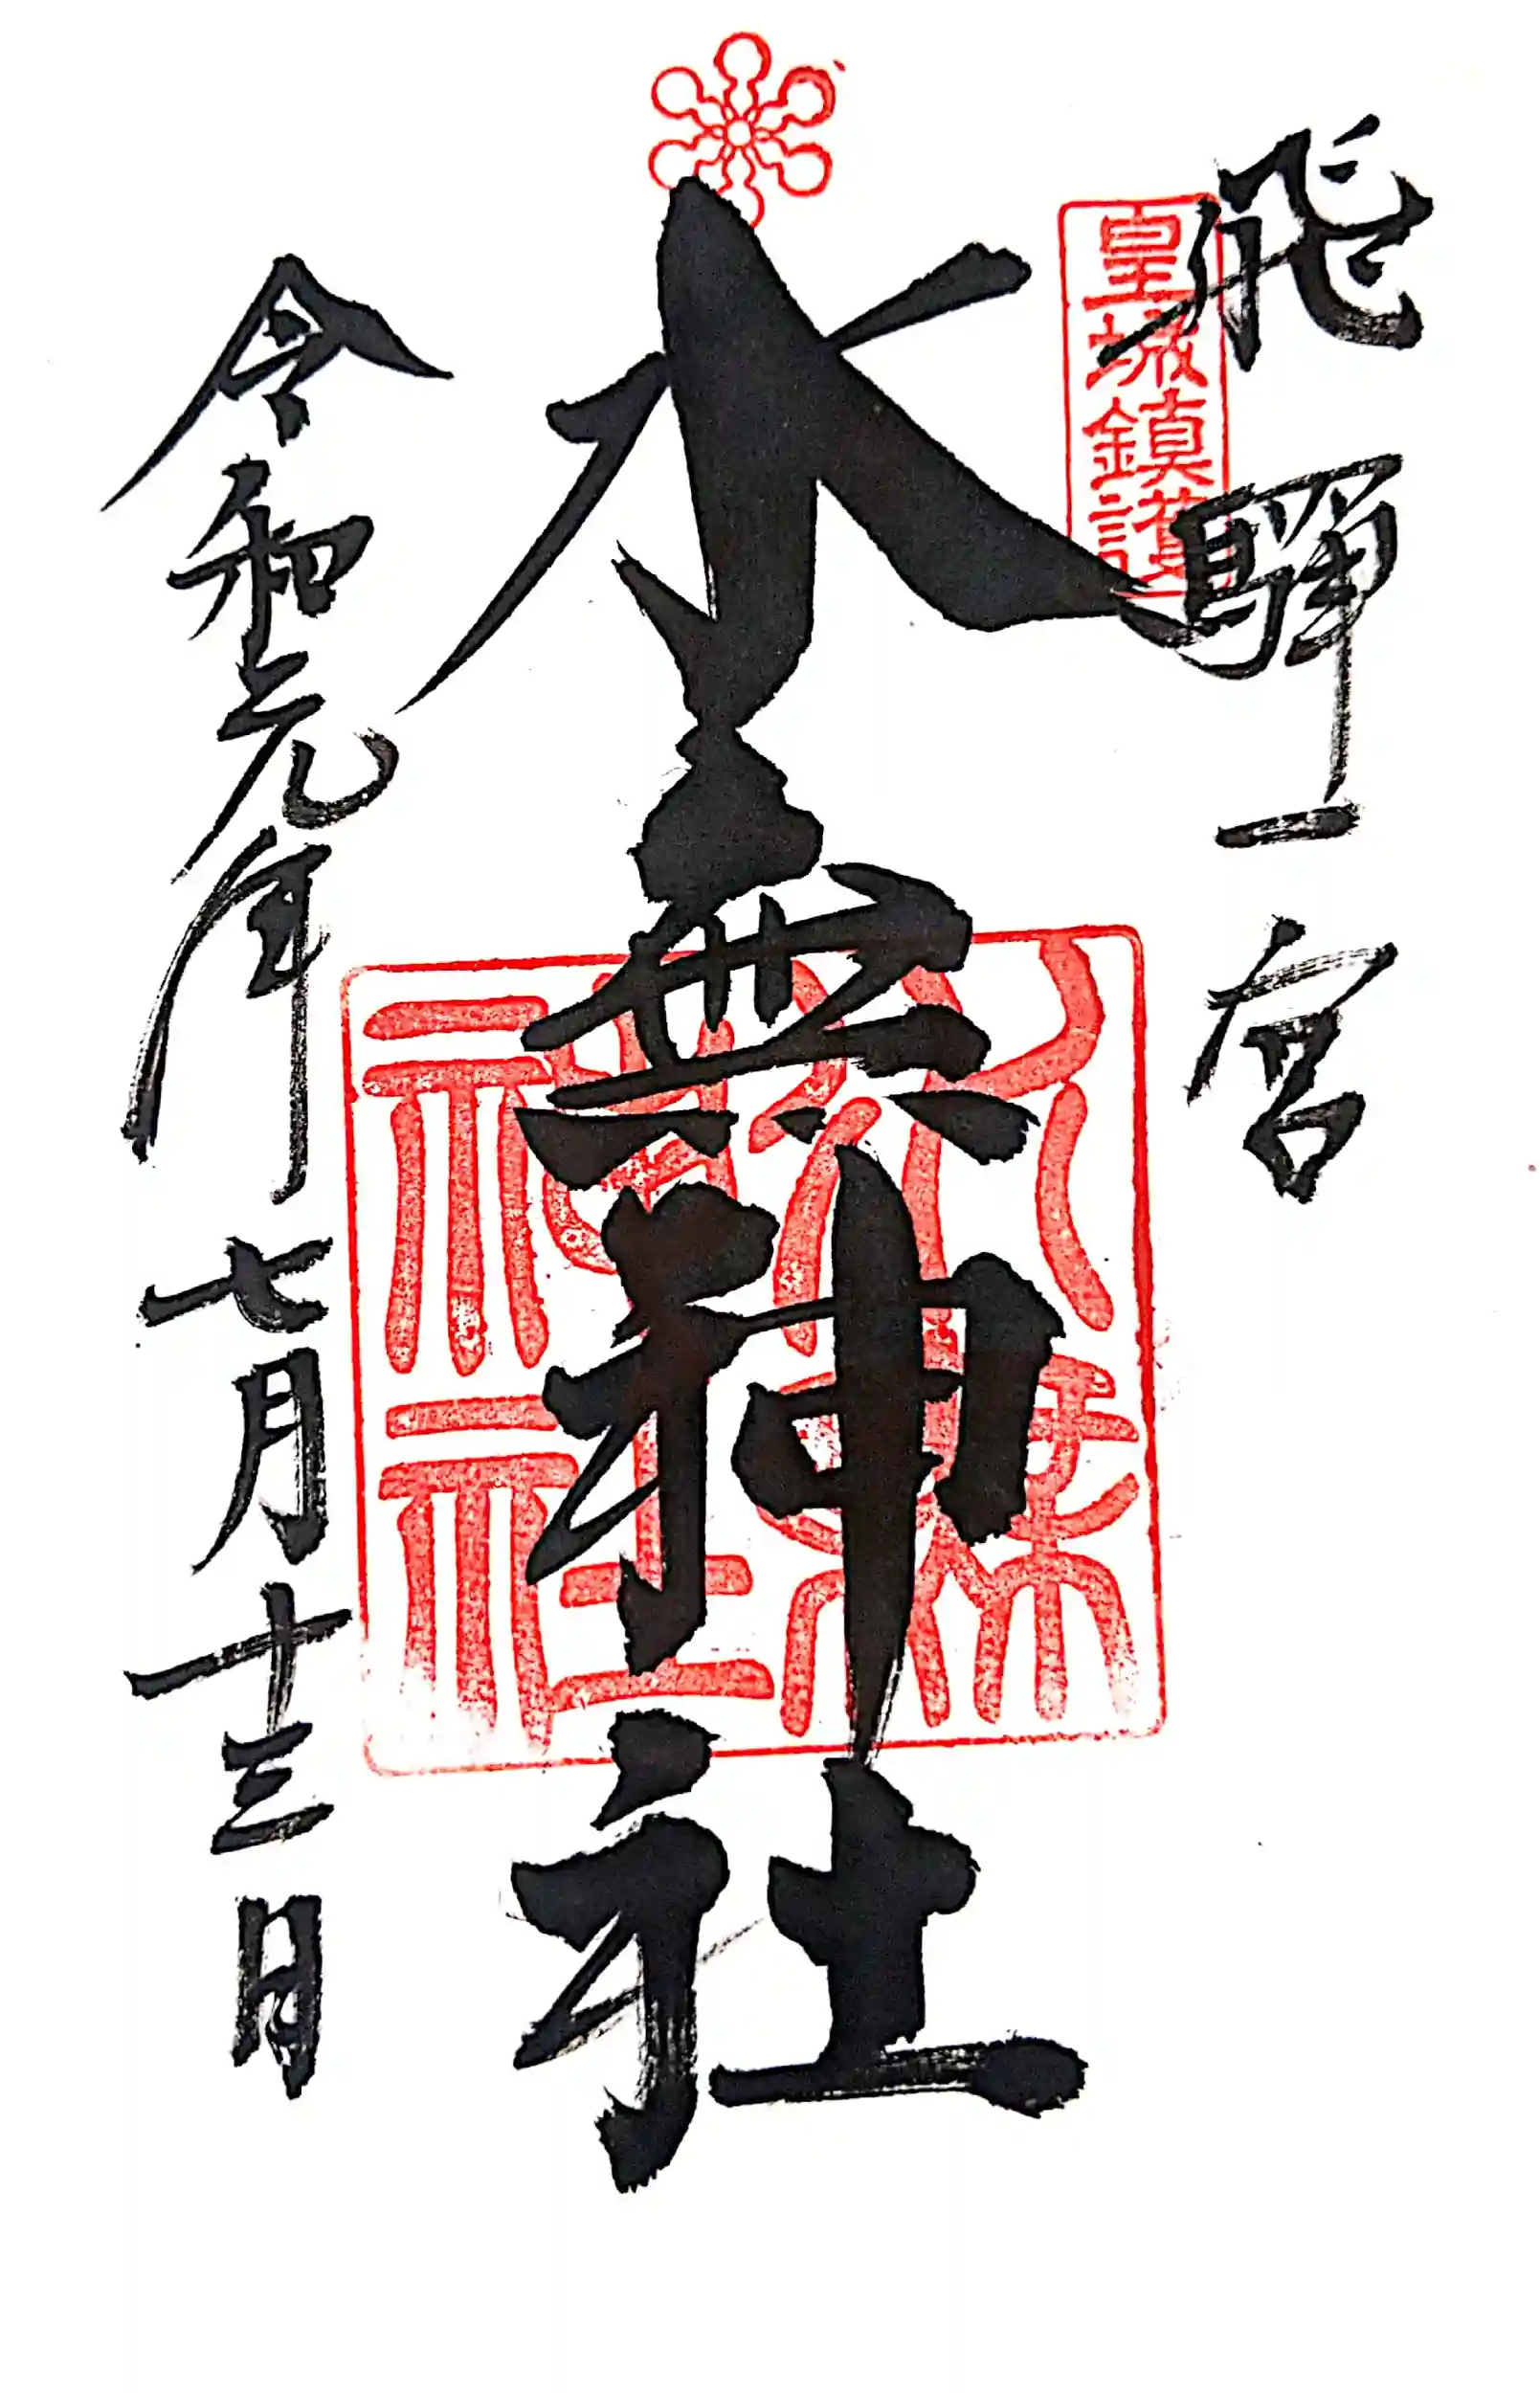 飛騨一宮
皇城鎮護
水無神社
水無神社
令和元年七月十三日